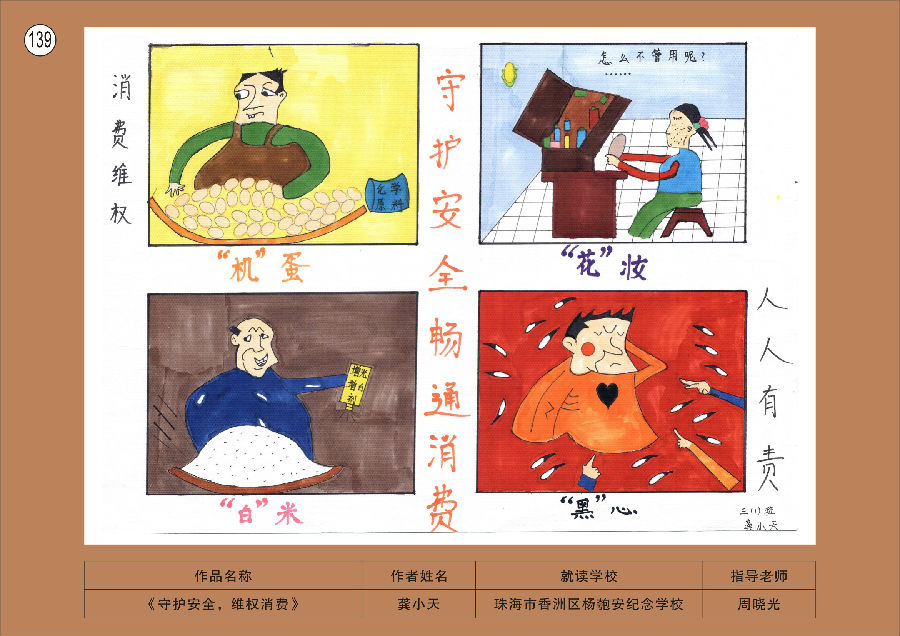 139
消费维权
守护安全畅通消费
人人有责
化学
原料
“机”蛋
怎么不管用呢？
……
“花”妆
增光
着白
剂
“白”米
“黑”心
三(1)班
龚小天
作品名称 作者姓名 就读学校 指导老师
《守护安全，维权消费》 龚小天 珠海市香洲区杨匏安纪念学校 周晓光